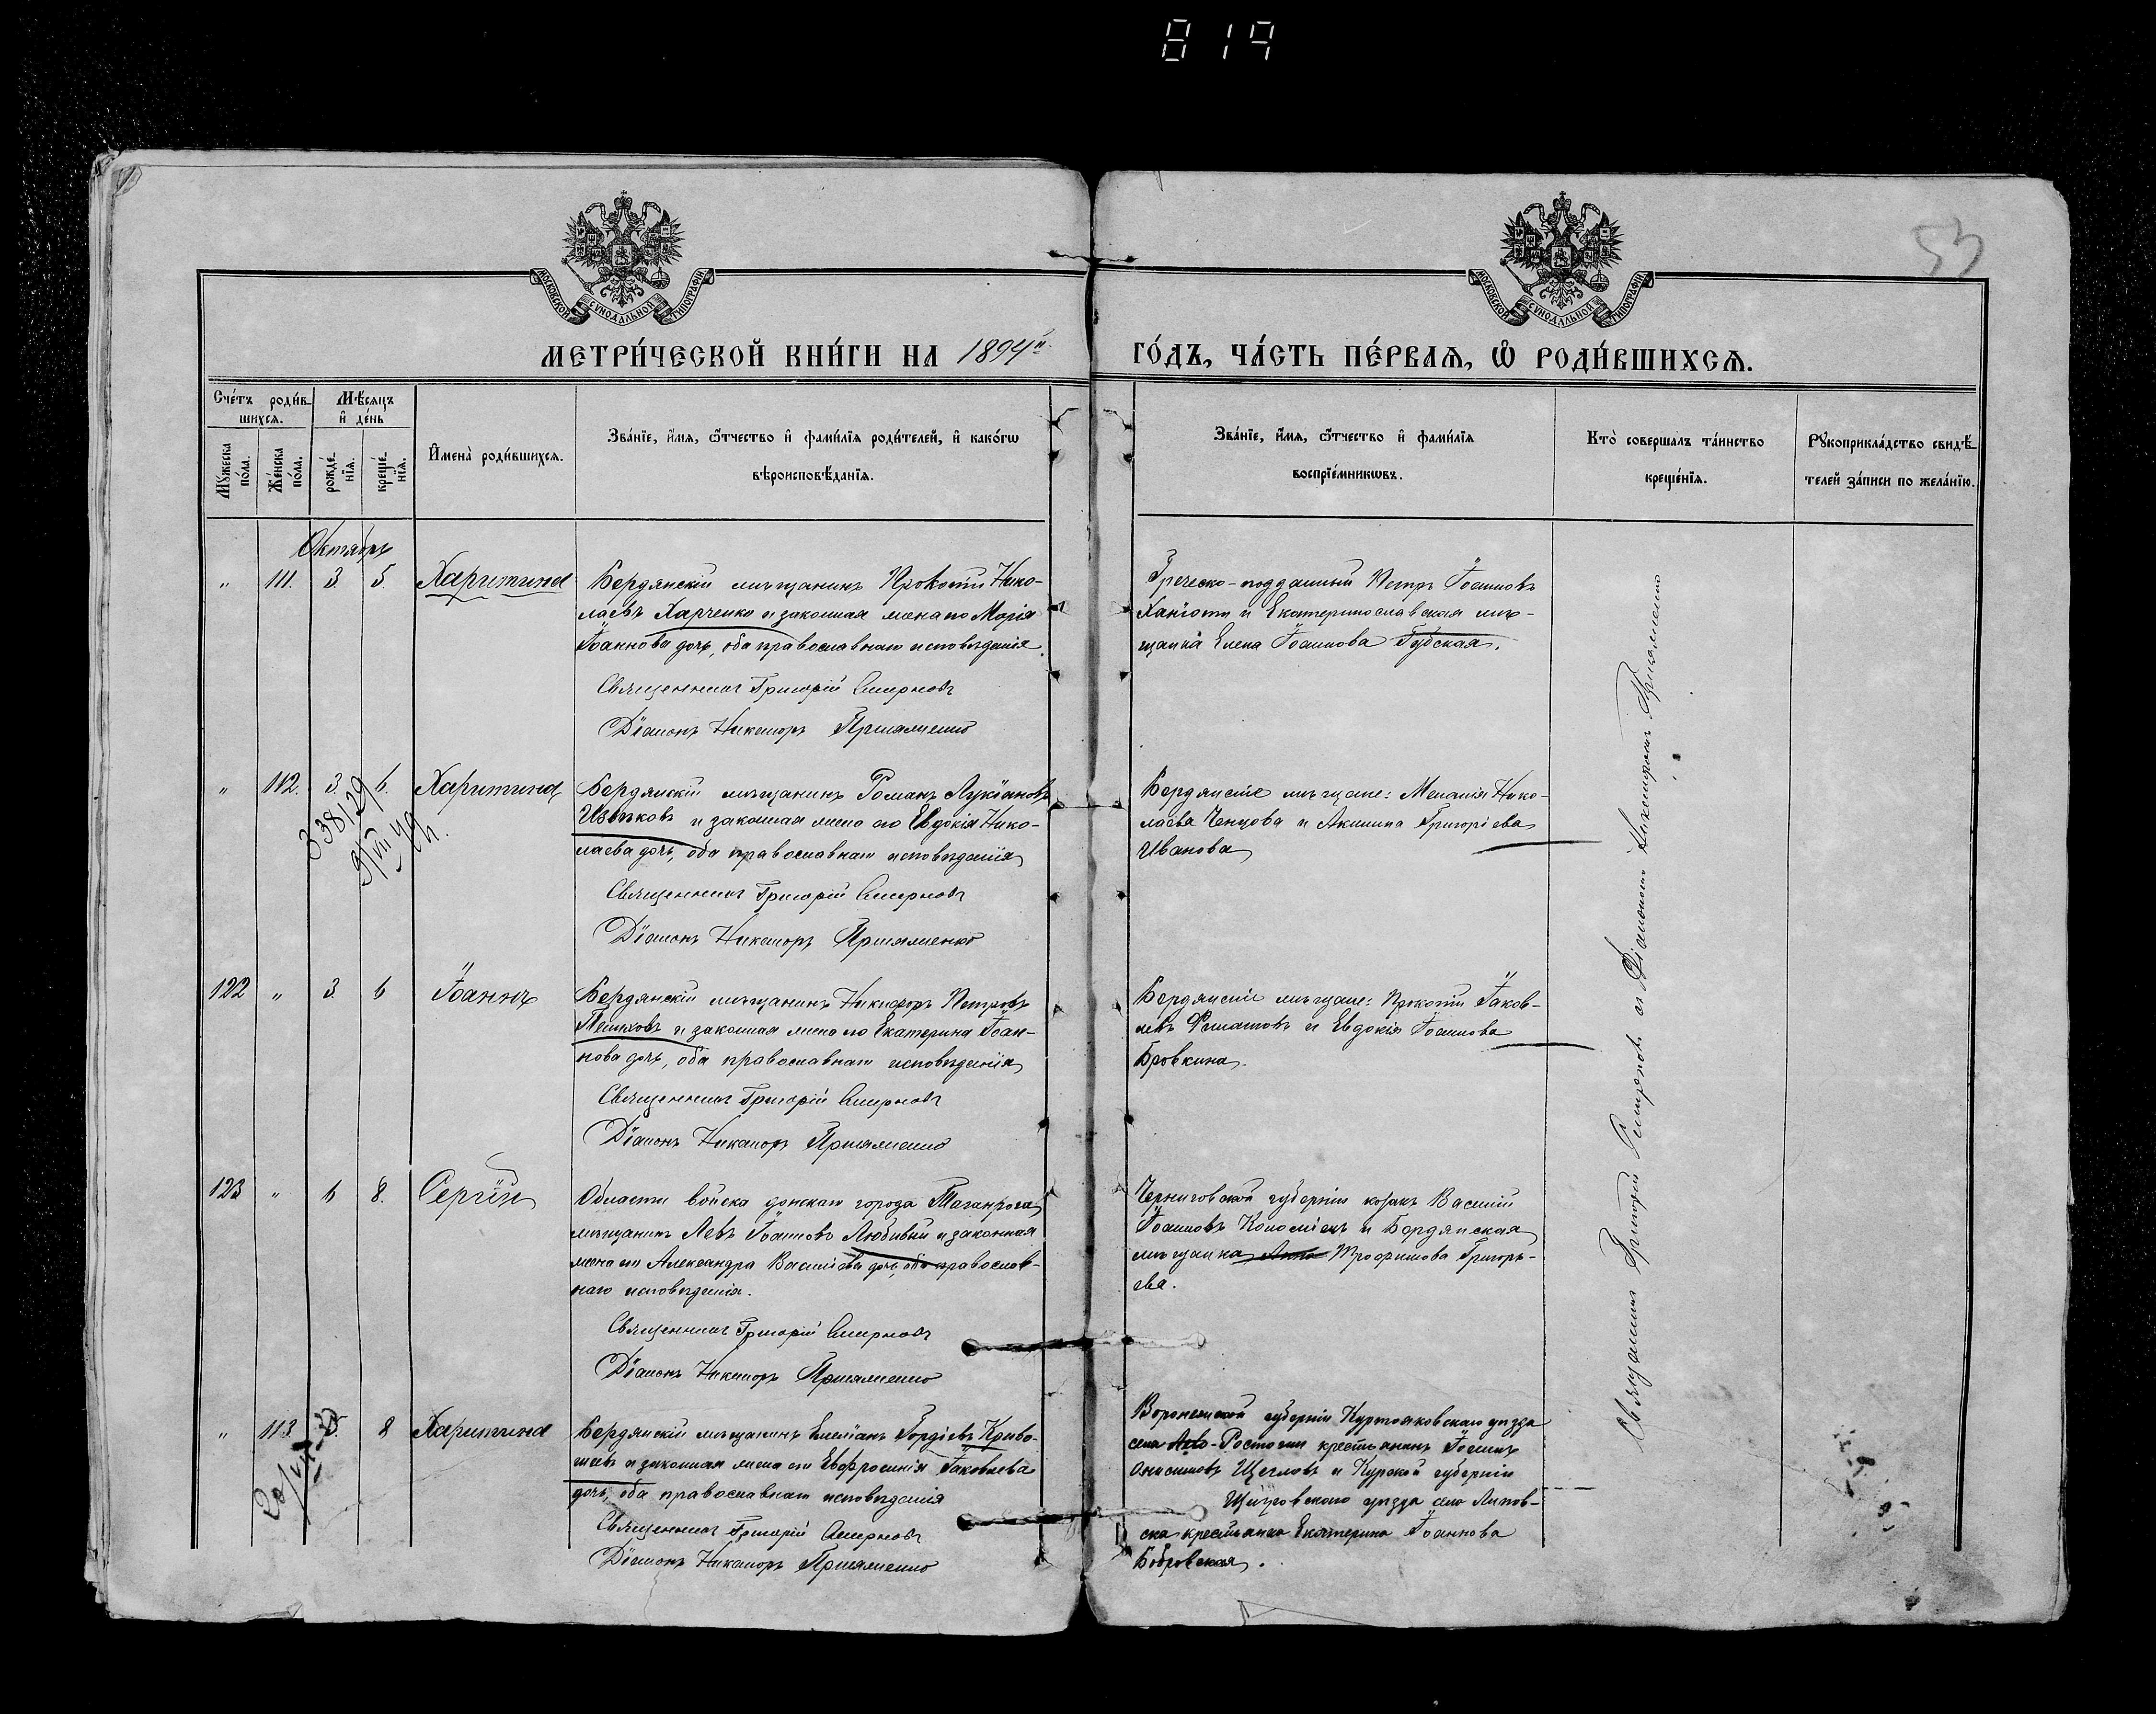 819
53
МОСКОВСКОЙ СѴНОДАЛЬНОЙ ТИПОГРАФІИ
МОСКОВСКОЙ СѴНОДАЛЬНОЙ ТИПОГРАФІИ
МЕТРИ́ЧЕСКОЙ КНИ́ГИ НА 1894й
ГО́ДЪ, ЧА́СТЬ ПЕ́РВАѦ, Ѽ РОДИ́ВШИХСѦ.
Сче́тъ роди́в-
шихсѧ.
Мѣ́сѧцъ
и҆ де́нь
Мꙋжеска
по́ла.
Же́нска
по́ла.
рожде́-
нїѧ.
креще́-
нїѧ.
И҆мена̀ роди́вшихсѧ.
Зва́нїе, и҆́мѧ, ѻ҆́тчество и҆ фами́лїѧ роди́телей, и҆ како́гѡ
вѣроисповѣ́данїѧ.
Зва́нїе, и҆́мѧ, ѻ҆́тчество и҆ фами́лїѧ
воспрїе́мникѡвъ.
Кто̀ соверша́лъ та́инство
креще́нїѧ.
Рꙋкоприкла́дство свидѣ́-
телей за́писи по жела́нїю.
Октябрь
" 111. 3 5. Харитина
Бердянскій мѣщанинъ Прокопій Нико-
лаевъ Харченко и законная жена его Марія
Іоаннова дочь, оба православнаго исповѣданія.
Священникъ Григорій Смирновъ
Діаконъ Никаноръ
Греческо-подданный Петръ Іоанновъ
и Екатеринославская мѣ-
щанка Елена Іоаннова Губская.
" 112. 3. 6. Харитина
338129
9/VII 49
Бердянскій мѣщанинъ Романъ Лукіановъ
Извѣковъ и законная жена его Евдокія Нико-
лаева дочь, оба православнаго исповѣданія
Священникъ Григорій Смирновъ
Діаконъ Никаноръ
Бердянскіе мѣщане: Меланія Нико-
лаева Ченцова и Акилина Григоріева
Иванова
122 " 3. 6 Іоаннъ
Бердянскій мѣщанинъ Никифоръ Петровъ
Пешковъ и законная жена его Екатерина Іоан-
нова дочь, оба православнаго исповѣданія
Священникъ Григорій Смирновъ
Діаконъ Никаноръ
Бердянскіе мѣщане: Прокопій Іаков-
левъ и Евдокія Іоаннова
Бровкина.
123 " 6 8. Сергій
Области войска донскаго города Таганрога
мѣщанинъ Левъ Іоанновъ Любивый и законная
жена его Александра Василіева дочь, оба православ-
наго исповѣданія.
Священникъ Григорій Смирновъ
Діаконъ Никаноръ
Черниговской губерніи козакъ Василій
Іоанновъ Коломіецъ и Бердянская
мѣщанка Трофимова Григорь-
ева.
" 113. 5. 8 Харитина
Бердянскій мѣщанинъ Емеліанъ Гордіевъ Криво-
шеевъ и законная жена его Евфросинія Іаковлева
дочь, оба православнаго исповѣданія
Священникъ Григорій Смирновъ
Діаконъ Никаноръ
Воронежской губерніи уѣзда
села крестьянинъ Іоаннъ
Онисимовъ Щегловъ и Курской губерніи
Щигровскаго уѣзда села Липов-
ска крестьянка Екатерина Іоаннова
Бобровская.
Священникъ Григорій Смирновъ съ Діакономъ Никаноромъ